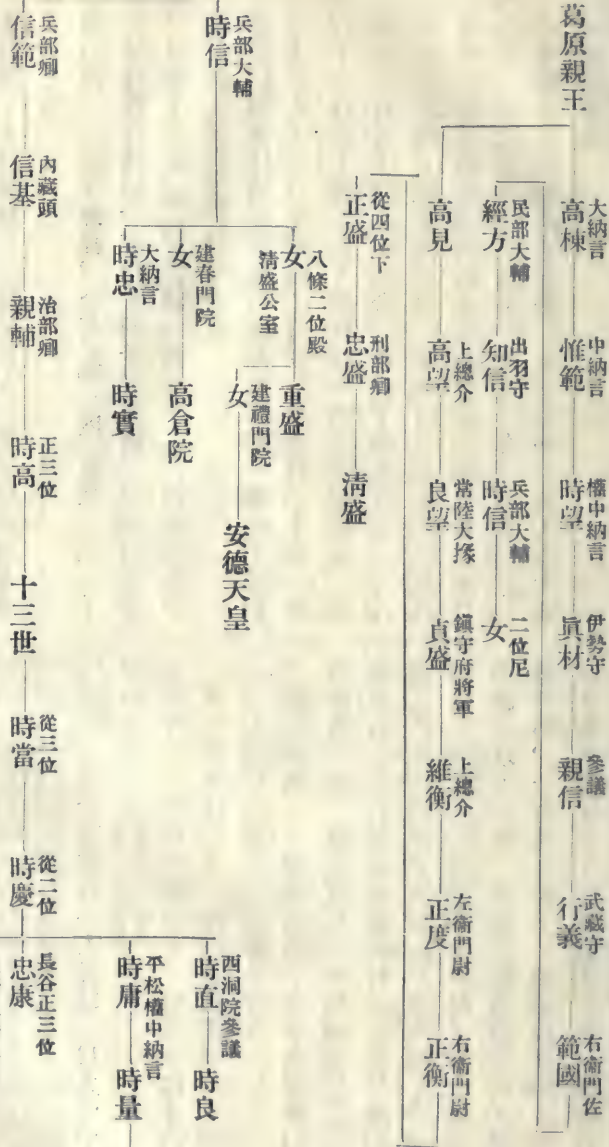 葛原親王
大納言
高棟
中納言
惟範
權中納言
時望
伊勢守
眞材
參議
親信
武藏守
行義
右衞門佐
範國
民部大輔
經方
出羽守
知信
兵部大輔
時信
二位尼
女
高見
上總介
高望
常陸大掾
良望
鎭守府將軍
貞盛
上總介
維衡
左衞門尉
正度
右衞門尉
正衡
從四位下
正盛
刑部卿
忠盛
淸盛
兵部大輔
時信
八條二位殿
女
淸盛公室
重盛
建禮門院
女
安德天皇
建春門院
女
高倉院
大納言
時忠
時實
兵部卿
信範
內藏頭
信基
治部卿
親輔
正三位
時高
十三世
從三位
時當
從二位
時慶
西洞院參議
時直
時良
平松權中納言
時庸
時量
長谷正三位
忠康